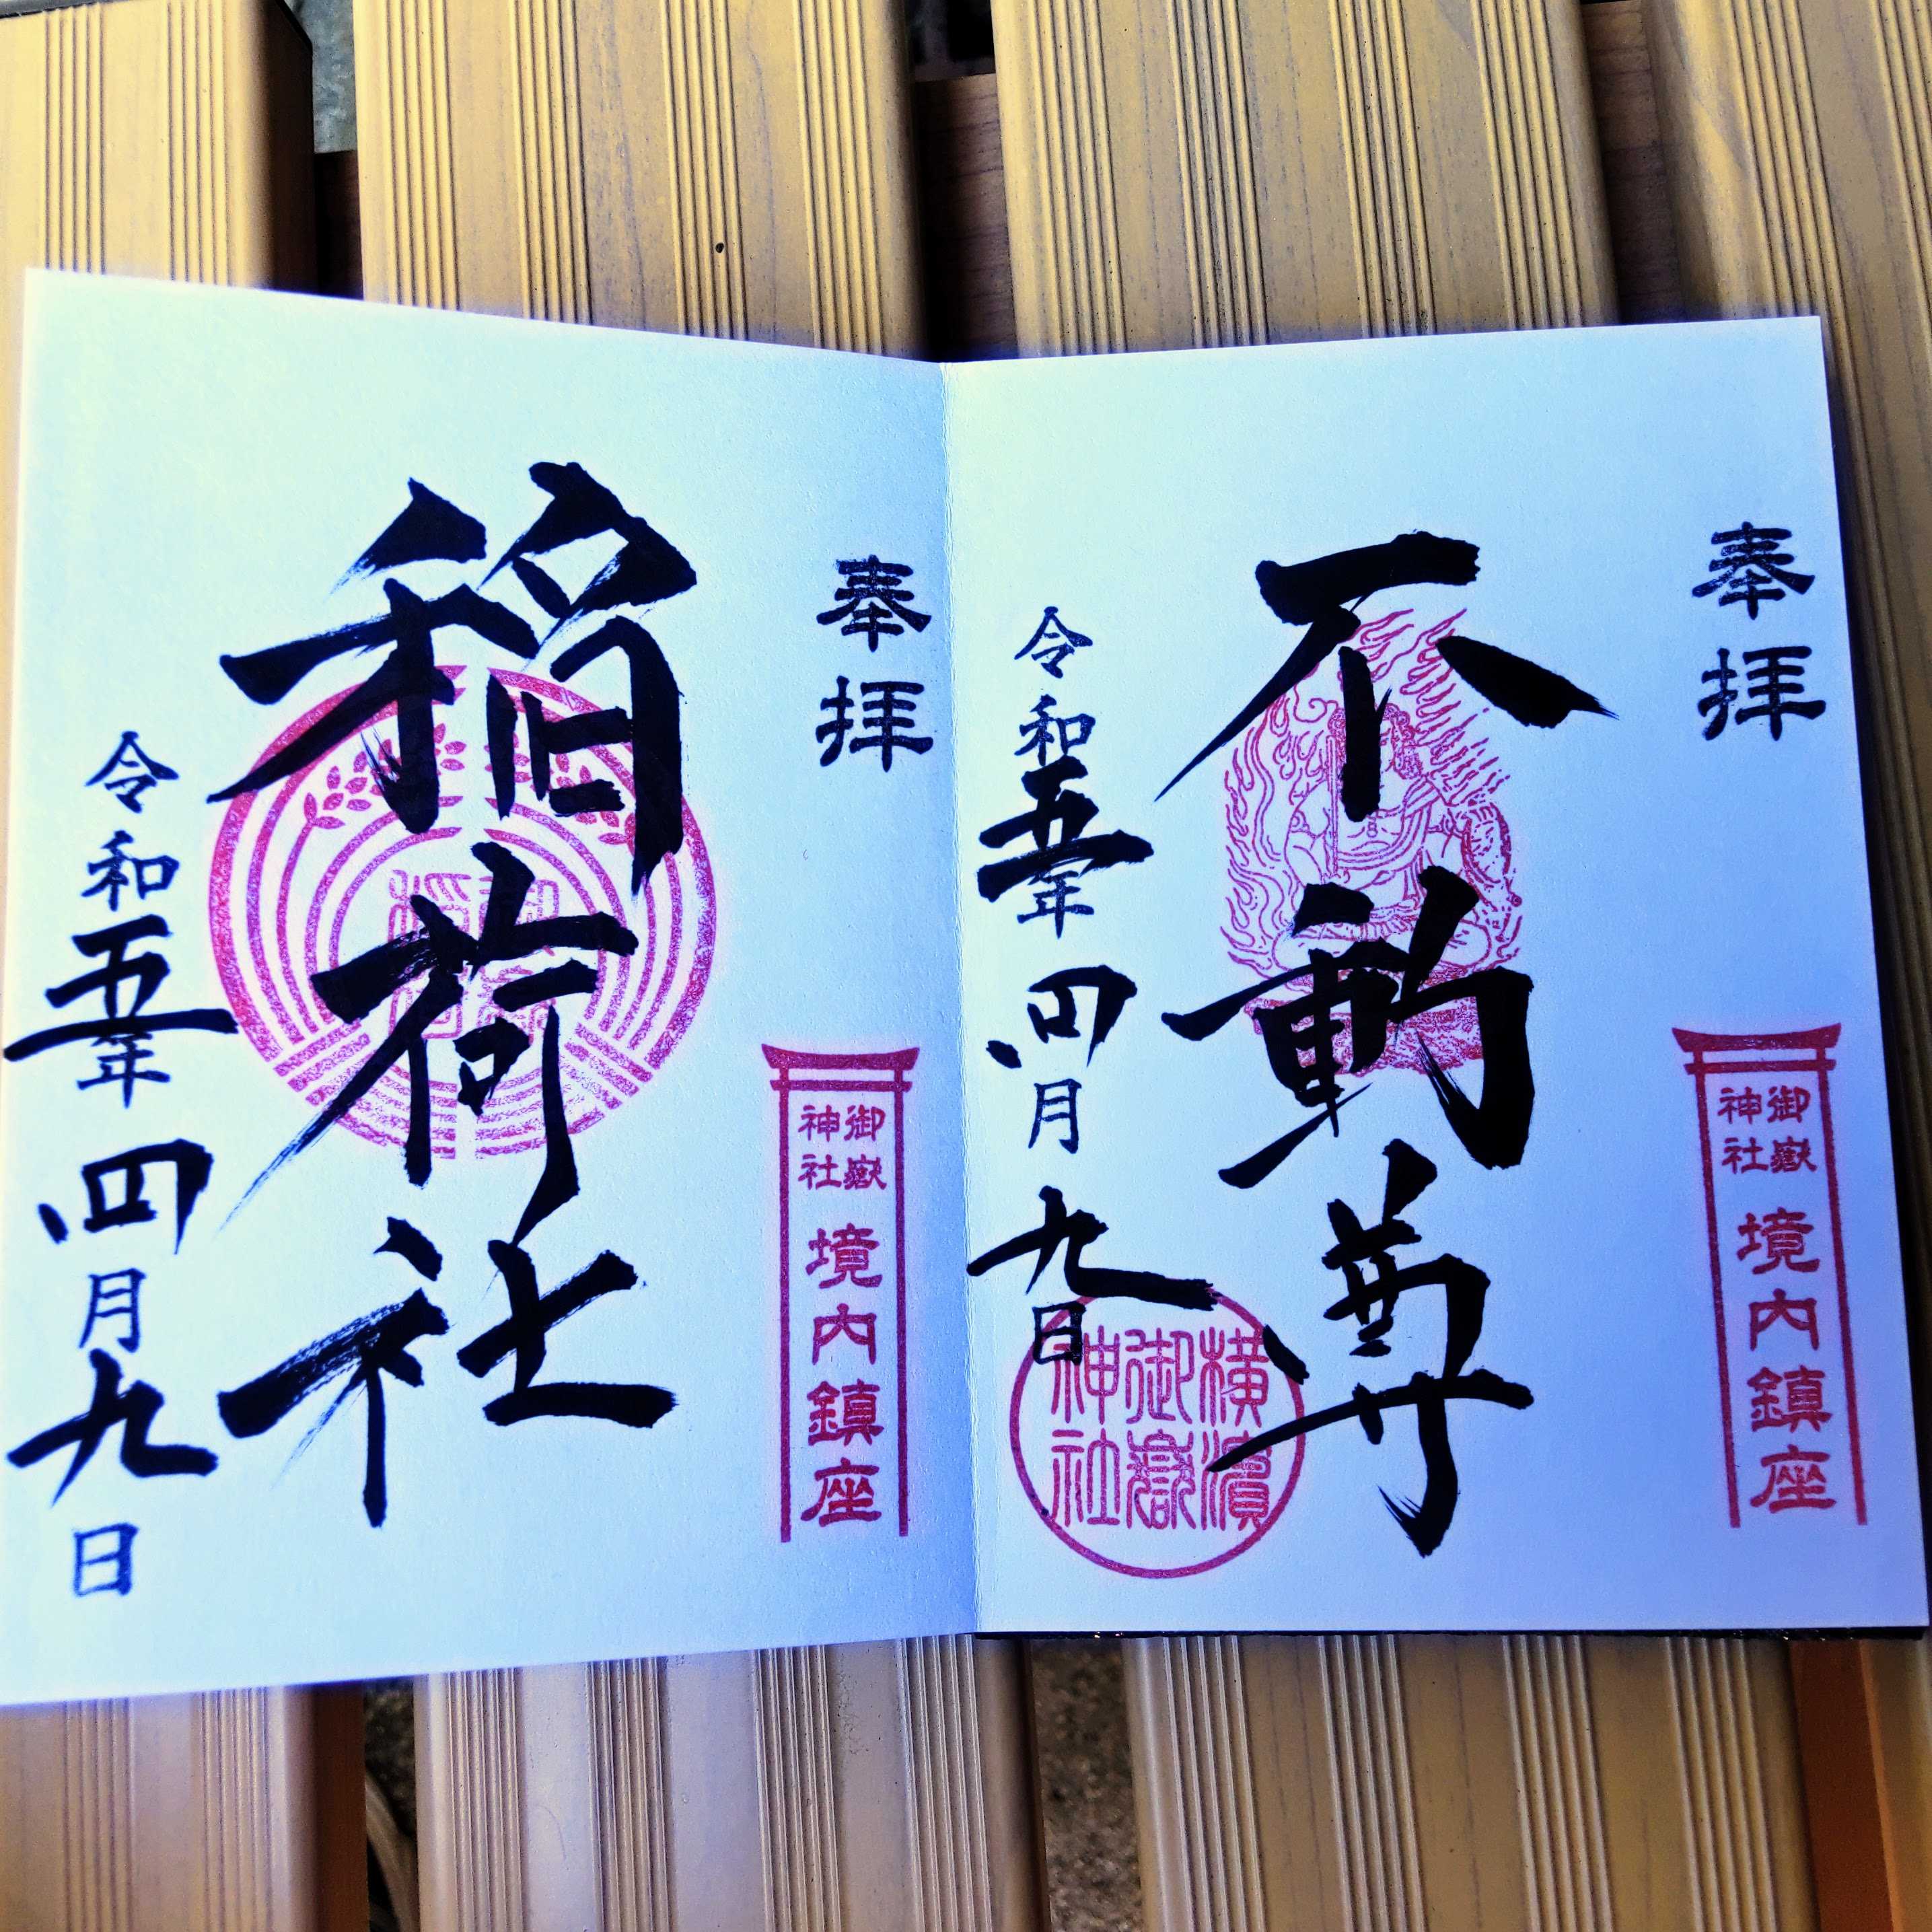 奉拝
御嶽
神社
境内鎮座
不動尊
令和五年四月九日
横濱
御嶽
神社
奉拝
御嶽
神社
境内鎮座
稲荷社
令和五年四月九日